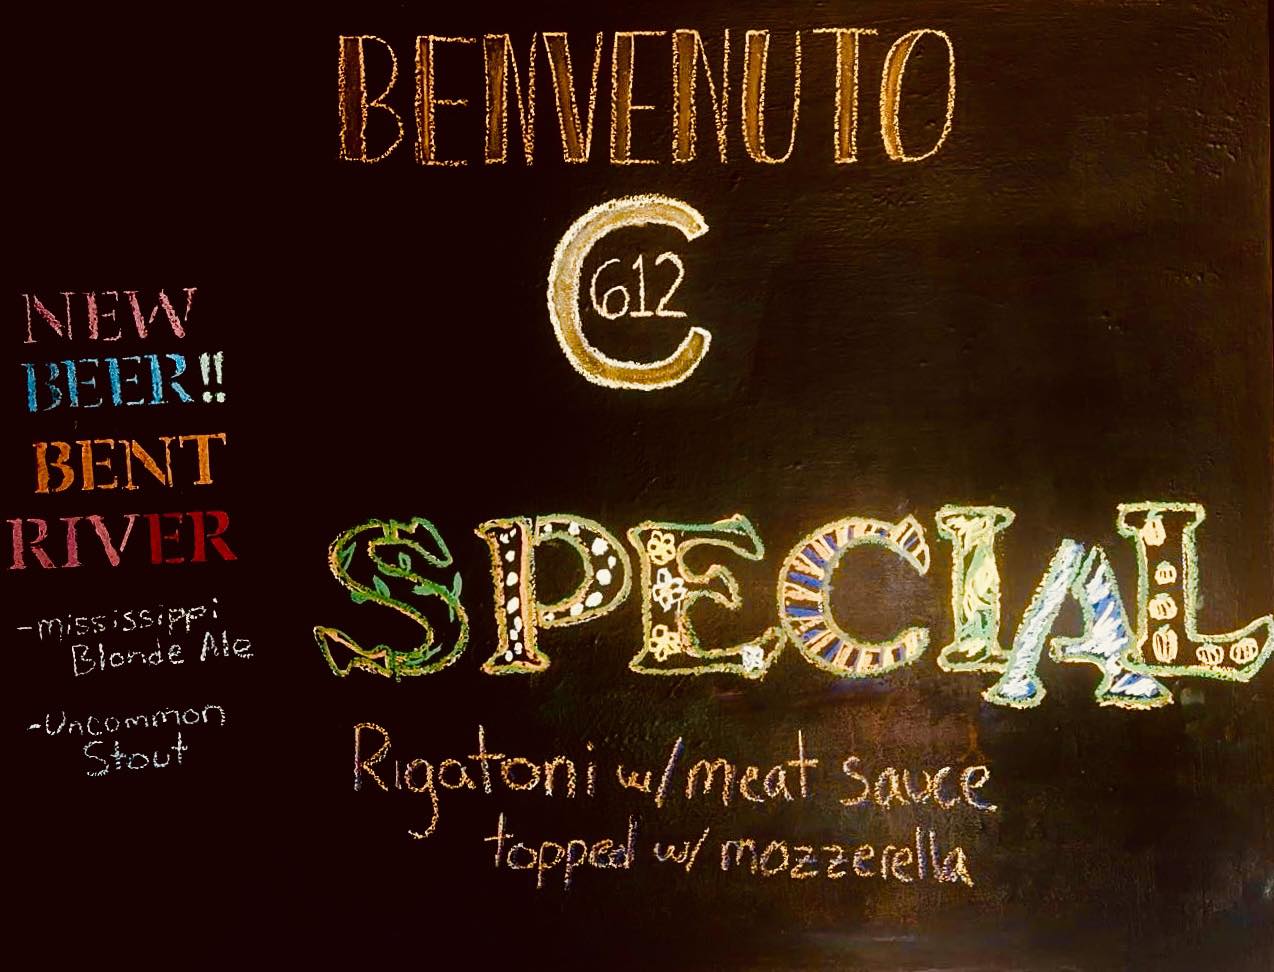 BENVENUTO
C
612
NEW
BEER!!
BENT
RIVER
-mississippi
Blonde Ale
-Uncommon
Stout
SPECIAL
Rigatoni w/meat sauce
topped w/ mozzerella